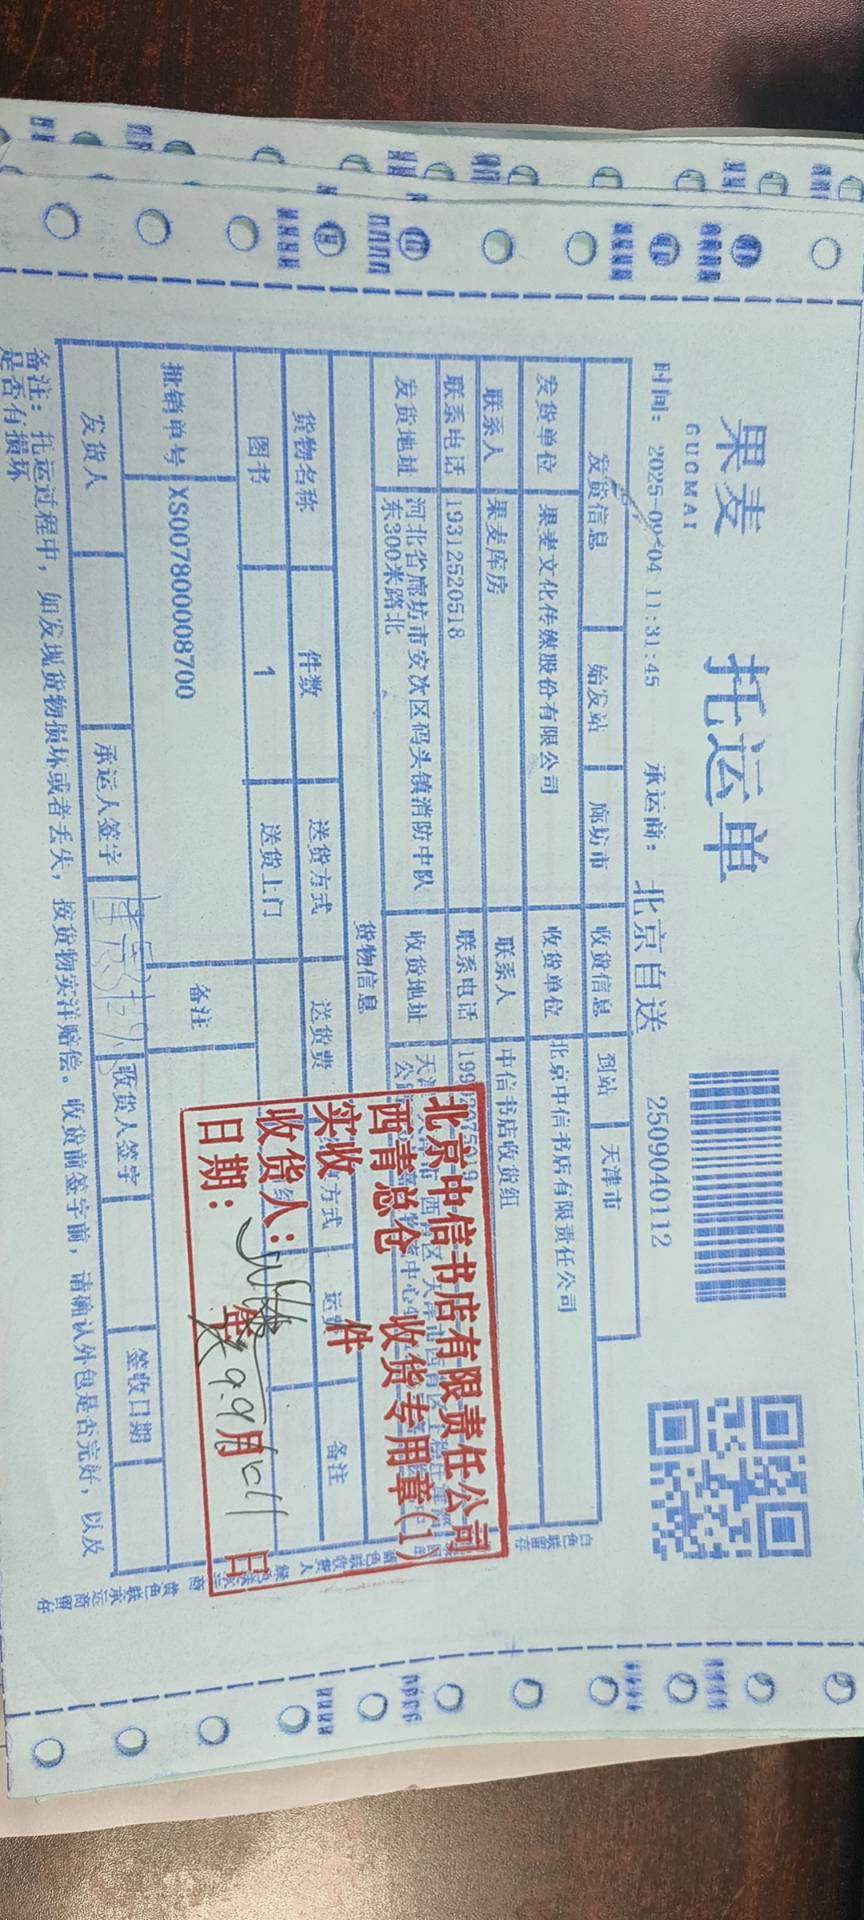 果麦
GUOMAI
托运单
时间： 2025-09-04 11:31:45 承运商： 北京自送 2509040112
发货信息 始发站 廊坊市 收货信息 到站 天津市
发货单位 果麦文化传媒股份有限公司 收货单位 北京中信书店有限责任公司
联系人 果麦库房 联系人 中信书店收货组
联系电话 19312520518 联系电话
发货地址 河北省廊坊市安次区码头镇消防中队东300米路北 收货地址
货物信息
货物名称 件数 送货方式 送货费 方式 备注
图书 1 送货上门
批销单号 XS007800008700 备注
发货人 承运人签字 收货人签字 签收日期
备注：托运过程中，如发现货物损坏或者丢失，按货物实洋赔偿。收货前签字前，请确认外包是否完好，以及
是否有损坏
北京中信书店有限责任公司
西青总仓 收货专用章(1)
实收 件
收货人：
日期： 月 日
白色联留存
黄色联承运商留存